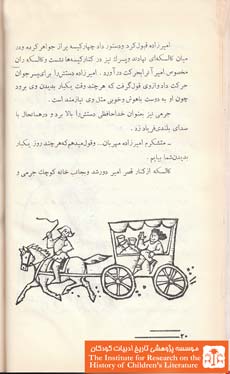 امیرزاده قبول کرد و دستور داد چهار کیسه پر از جواهر کرده و در
میان کالسکه‌ای نهادند و پسرك نیز در کنار کیسه‌ها نشست و کالسکه ران
مخصوص امیر آنرا بحرکت در آورد. امیرزاده دستش را برای پسر جوان
حرکت داد و ازوی قول گرفت که هر چند وقت یکبار بدیدن وی برود
چون او به دوست باهوش و خوبی مثل وی نیازمند است.
جرمی نیز بعنوان خداحافظی دستش را بالا برد و در همانحال با
صدای بلندی فریاد زد.
ـ متشکرم امیرزاده مهربان. وقول میدهم که هر چند روز یکبار
بدیدن شما بیایم.
کالسکه از کنار قصر امیر دور شد و بجانب خانه کوچك جرمی و
۲۰
موسسه پژوهشی تاریخ ادبیات کودکان
The Institute for Research on the
History of Children's Literature